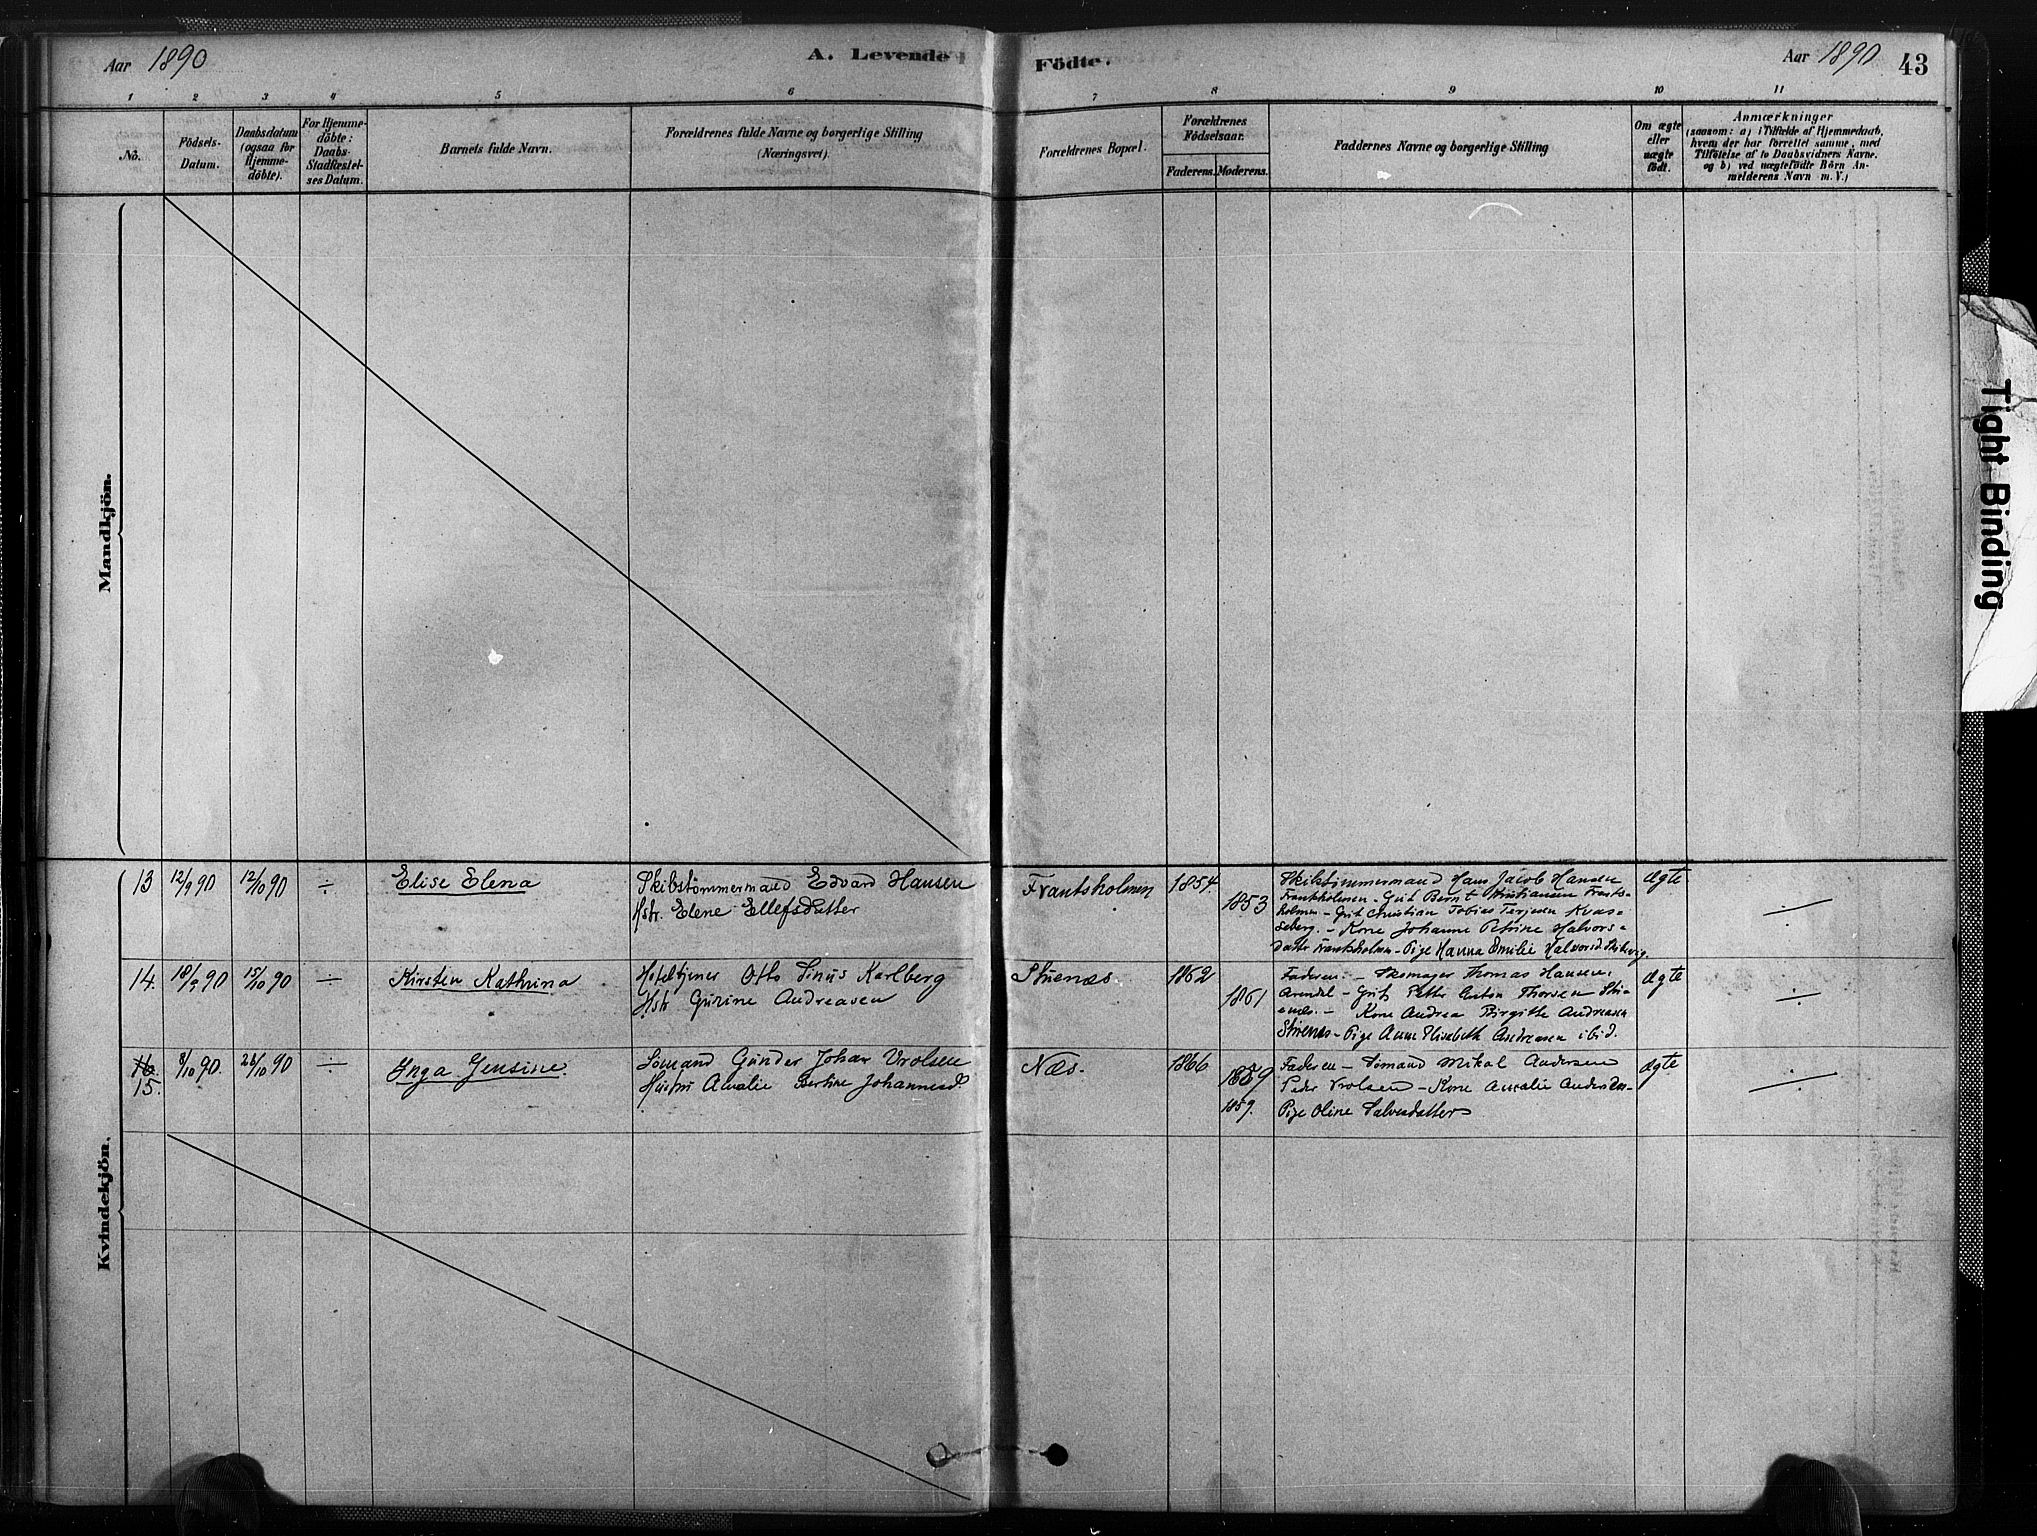 Aar 1890
A. Levende Födte.
Aar 1890
43
1 2 3 4 5 6 7 8 9 10 11
No.
Födsels-
Datum.
Daabsdatum
(ogsaa for
Hjemme-
döbte).
For Hjemme-
döbte:
Daabs-
Stadfæstel-
ses Datum.
Barnets fulde Navn.
Forældrenes fulde Navne og borgerlige Stilling
(Næringsvei).
Forældrenes Bopæl.
Forældrenes
Födselsaar.
Faderens. Moderens.
Faddernes Navne og borgerlige Stilling
Om ægte
eller
uægte
födt.
Anmærkninger
(saasom: a) i Tilfælde af Hjemmedaab,
hvem der har forrettet samme, med
Tilföielse af to Daabsvidners Navne,
og b) ved uægtefödte Börn An-
melderens Navn m. V.)
Mandkjön.
Kvindekjön.
13
12/9 90
12/10 90
÷
Elise Elena
Skibstömmermand Edvard Hansen
Hstr. Elene Ellefsdatter
Frantsholmen
1854
1853
Skibstömmermand Hans Jacob Hansen
Frantsholmen - Gut Bernt Kristiansen Frants-
holmen - Gut Christian Tobias Terjesen Kvas-
seberg. - Kone Johanne Petrine Halvors-
datter Frantsholmen - Pige Hanna Emilie Halvorsd.
ægte
÷
14.
18/9 90
15/10 90
÷
Kirsten Kathrina
Hoteltjener Otto Linus Karlberg
Hstr Gurine Andreasen
Stuenæs
1862
1861
Faderen. - Skomager Thomas Hansen,
Arendal - Gut Petter Anton Thorsen Stu-
enæs. - Kone Andrea Birgitte Andreasen
Stuenæs - Pige Anne Elisabeth Andreasen ibid.
ægte
÷
16
15.
8/10 90.
26/10 90
÷
Inga Jensine
Sömand Gunder Johan Vrolsen
Hustru Amalie Bertine Johannesd
Næs.
1866
1859
1859.
Faderen - Sömand Mikal Andersen
Peder Vrolsen - Kone Amalie Andersen -
Pige Oline Salvesdatter
ægte
÷
Tight Binding